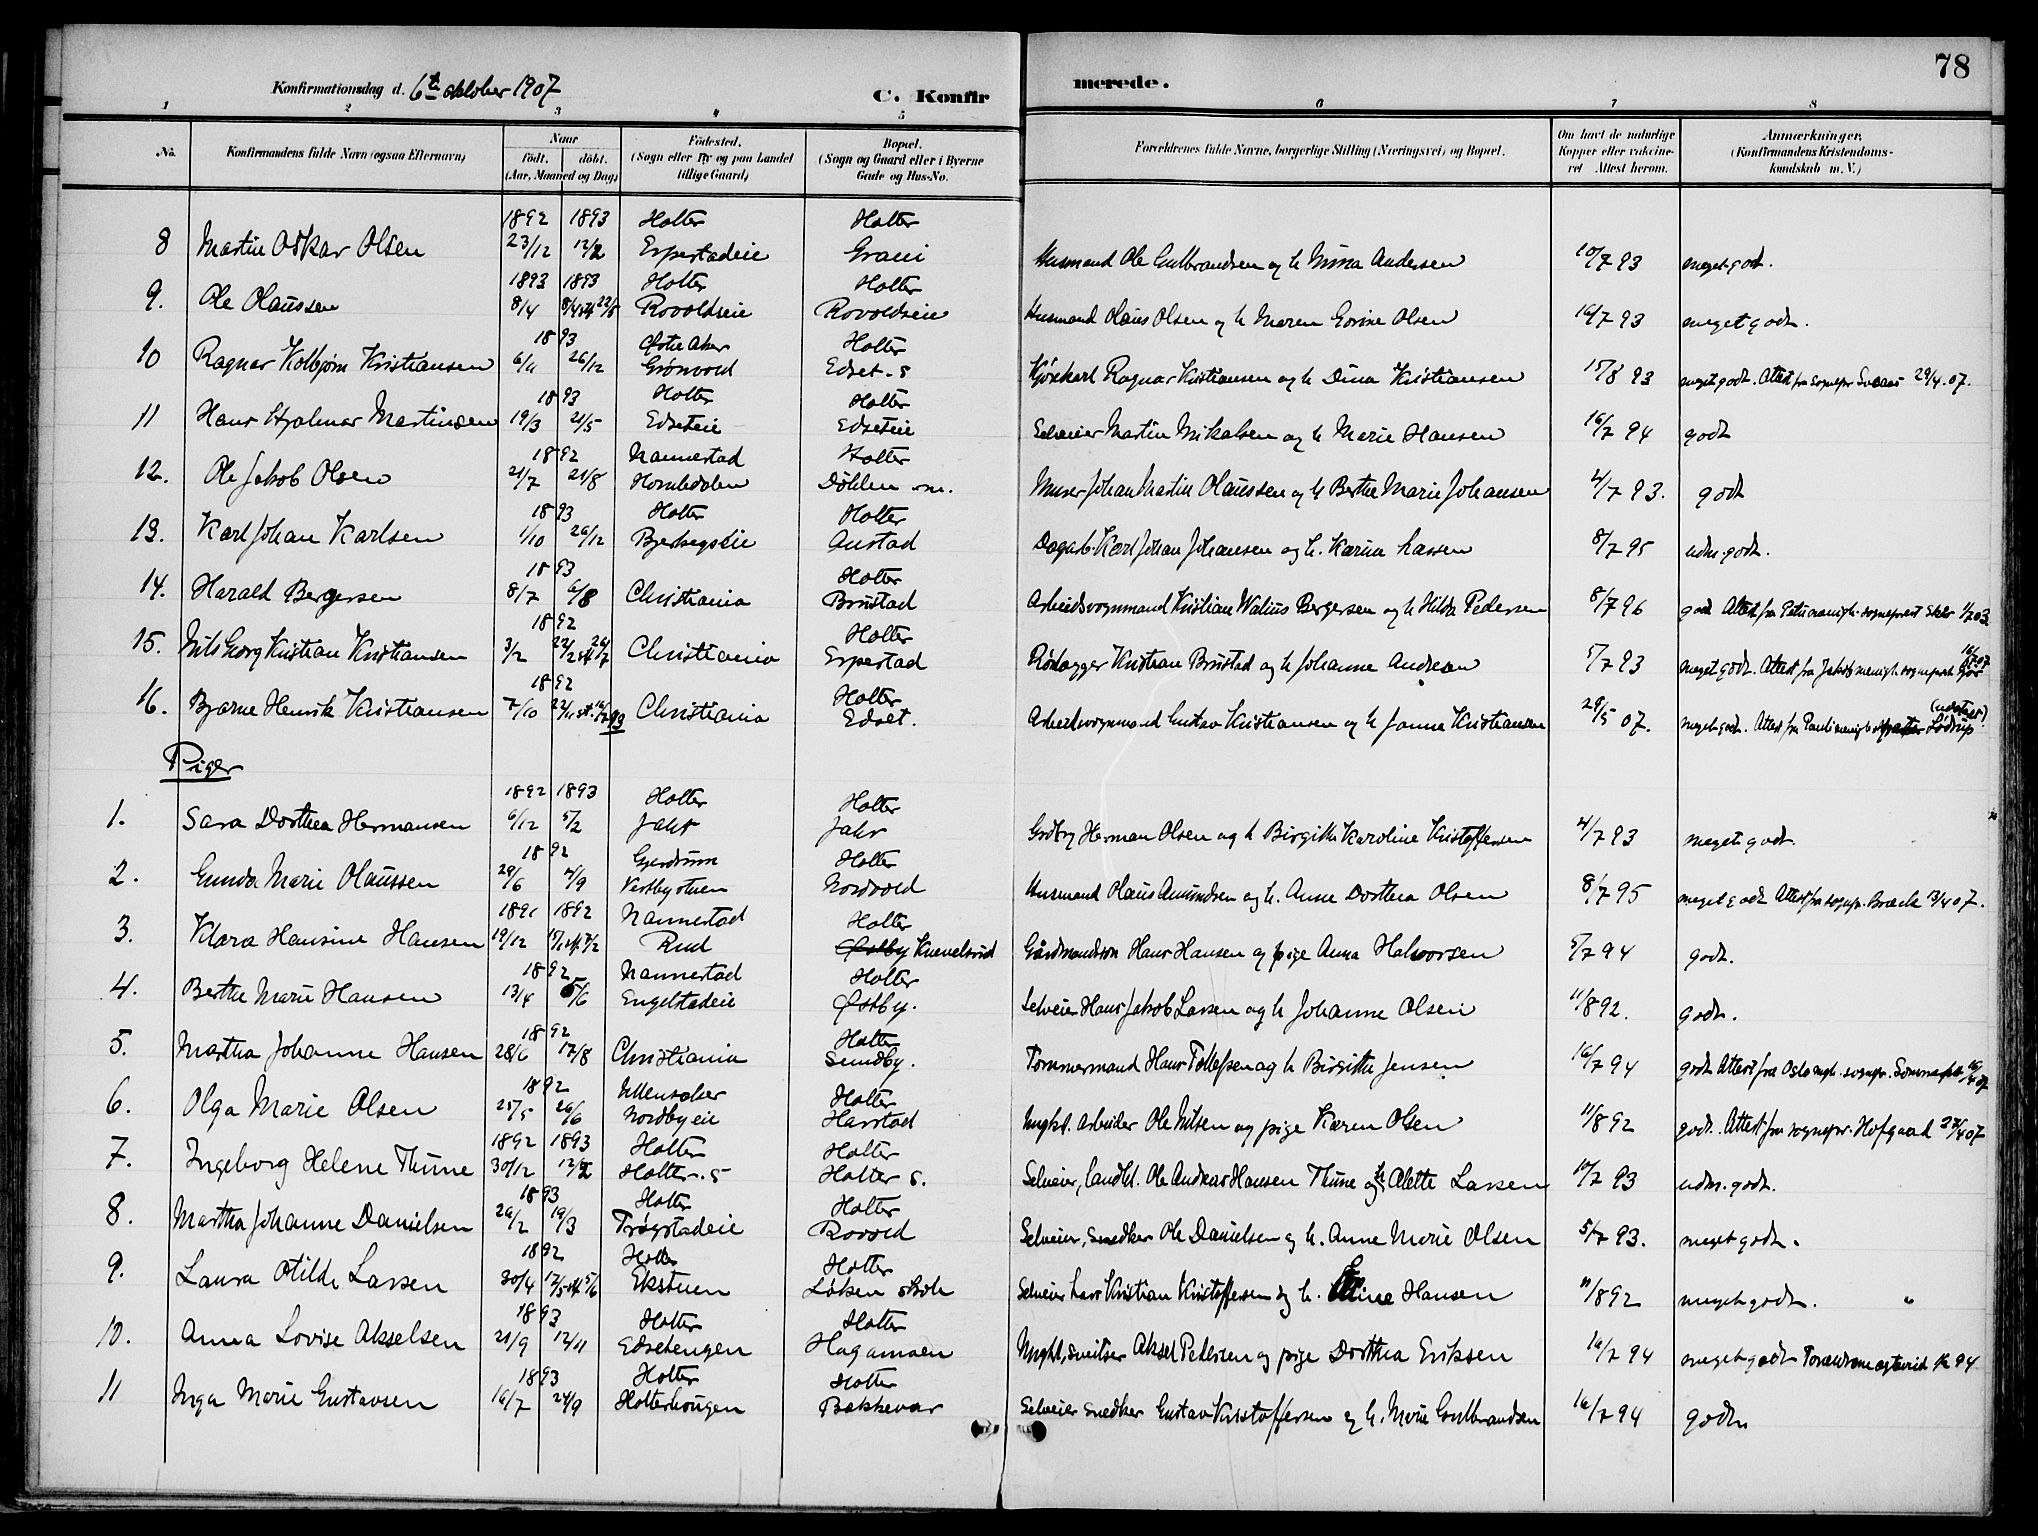 78
Konfirmationsdag d. 6te oktober 1907
C. Konfirmerede.
1 2 3 4 5 6 7 8
No. Konfirmandens fulde Navn (ogsaa Efternavn) Naar født. døbt. (Aar, Maaned og Dag) Fødested. (Sogn eller By og paa Landet tillige Gaard) Bopæl. (Sogn og Gaard eller i Byerne Gade og Hus-No. Forældrenes fulde Navne, borgerlige Stilling (Næringsvei) og Bopæl. Om havt de naturlige Kopper eller vakcineret Attest herom. Anmærkninger. (Konfirmandens Kristendomskundskab m. V.)
1892 1893 Holter Holter
8 Martin Oskar Olsen 23/12 12/2 Erpestadeie Grani Husmand Ole Gulbrandsen og h Mina Andersen 10/7 93 meget godt.
1893 1893 Holter Holter
9. Ole Olaussen 8/4 22/5 Rovoldseie Rovoldseie Husmand Olaus Olsen og h Maren Lovise Olsen 16/7 93 meget godt.
1893 Østre Aker Holter
10 Ragnar Kolbjørn Kristiansen 26/12 Grønvold Edset. s Kjørekarl Ragnar Kristiansen og h Dina Kristiansen 15/8 93 meget godt. Attest fra sognepr 29/4.07.
1893 Holter Holter
11 Hans Hjalmar Martinsen 19/3 21/5 Edseteie Edseteie Selveier Martin Mikalsen og h Marie Hansen 16/7 94 godt
1892 Nannestad Holter
12. Ole Jakob Olsen 21/7 21/8 Hornledalen Døhlen Murer Johan Martin Olaussen og h Berthe Marie Johansen 4/7 93. godt
1893 Holter Holter
13. Karl Johan Karlsen 1/10 26/12 Bjerkegseie Austad Dagarb. Karl Johan Johansen og h. Karina Larsen 8/7 95 udm. godt.
1893 Holter
14. Harald Bergersen 8/7 6/8 Christiania Brustad Arbeidsvognmand Kristian Walius Bergersen og h Hilda Pedersen 8/7 96 godt Attest fra sogneprest
1892 Holter
15. Nils Georg Kristian Kristiansen 3/2 Christiania Erpestad Kristian Brustad og h Johanne Andrea 5/7 93 meget godt. Attest fra Jakobs menigh. sogneprest
1892 Holter
16. Bjarne Henrik Kristiansen 7/10 Christiania Edset. Arbeidsvognmand Gustav Kristiansen og h Janna Kristiansen 29/5 07. meget godt. Attest fra Pauli menigh. Lødrup
Piger
1892 1893 Holter Holter
1. Sara Dorthea Hermansen 6/12 5/2 Jahr Jahr Grdbr Herman Olsen og h Birgithe Karoline Kristoffersen 4/7 93 meget godt.
1892 Gjerdrum Holter
2. Gunda Marie Olaussen 29/6 4/9 Vestbystuen Nordvold Husmand Olaus Amundsen og h. Anne Dorthea Olsen 8/7 95 meget godt Attest fra sognepr. Bræck 13/4 07.
1891 1892 Nannestad Holter
3. Klara Hansine Hansen 19/12 Rud Østby Knevelsrud Gårdmandssøn Hans Hansen og pige Anna Halvorsen 5/7 94 godt.
1892 Nannestad Holter
4. Berthe Marie Hansen 13/4 5/6 Engelstadeie Østby. Selveier Hans Jakob Larsen og h Johanne Olsen 11/8 92. godt.
1892 Holter
5. Martha Johanne Hansen 28/6 17/8 Christiania Sundby. Tømmermand Hans Tollefsen og h Birgitte Jensen 16/7 94 godt Attest fra Oslo mgh. sognepr.
1892 Ullensaker Holter
6. Olga Marie Olsen 25/5 26/6 Nordbyeie Harstad Ungkl. Arbeider Ole Nilsen og pige Karen Olsen 11/8 92 godt. Attest fra sognepr. Hofgaard 27/4 07
1892 1893 Holter Holter
7. Ingeborg Helene Thune 30/12 12/2 Holter. s Holter s. Selveier, landh. Ole Andreas Hansen Thune og h Alette Larsen 10/7 93 udm. godt.
1893 Holter Holter
8. Martha Johanne Danielsen 26/2 19/3 Trøgstadeie Rovold Selveier, snedker Ole Danielsen og h. Anne Marie Olsen 5/7 93. meget godt.
1892 Holter Holter
9. Laura Otilde Larsen 30/4 Ekstuen Løken skole Selveier Lars Kristian Kristoffersen og h. Hansen 11/8 92 meget godt.
1893 Holter Holter
10. Anna Lovise Akselsen 21/9 12/11 Edsetengen Hagamoen Ungkl, sveitser Aksel Pedersen og pige Dorthea Eriksen 16/7 94 meget godt
1893 Holter Holter
11 Inga Marie Gustavsen 16/7 24/9 Holterhougen Bakkevar Selveier snedker Gustav Kristoffersen og h. Marie Gulbrandsen 16/7 94 godt